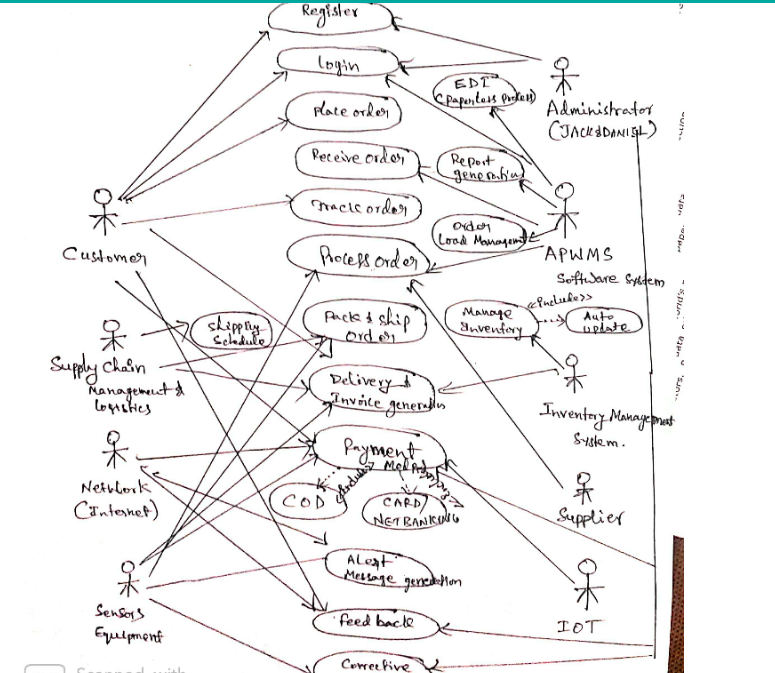 Register
Login
EDI
(paperless process)
Administrator
(JACK & DANIEL)
Place order
Receive order
Report
generation
Track order
Order
Load Management
Customer
Process order
APWMS
Software System
<<include>>
Shipping
Schedule
Pack & ship
Order
Manage
Inventory
Auto
update
Supply Chain
Management &
Logistics
Delivery &
Invoice generation
Inventory Management
System.
Payment
Network
(Internet)
COD
CARD/
NETBANKING
Supplier
Alert
Message generation
Sensors
Equipment
feed back
IOT
Corrective
Scanned with